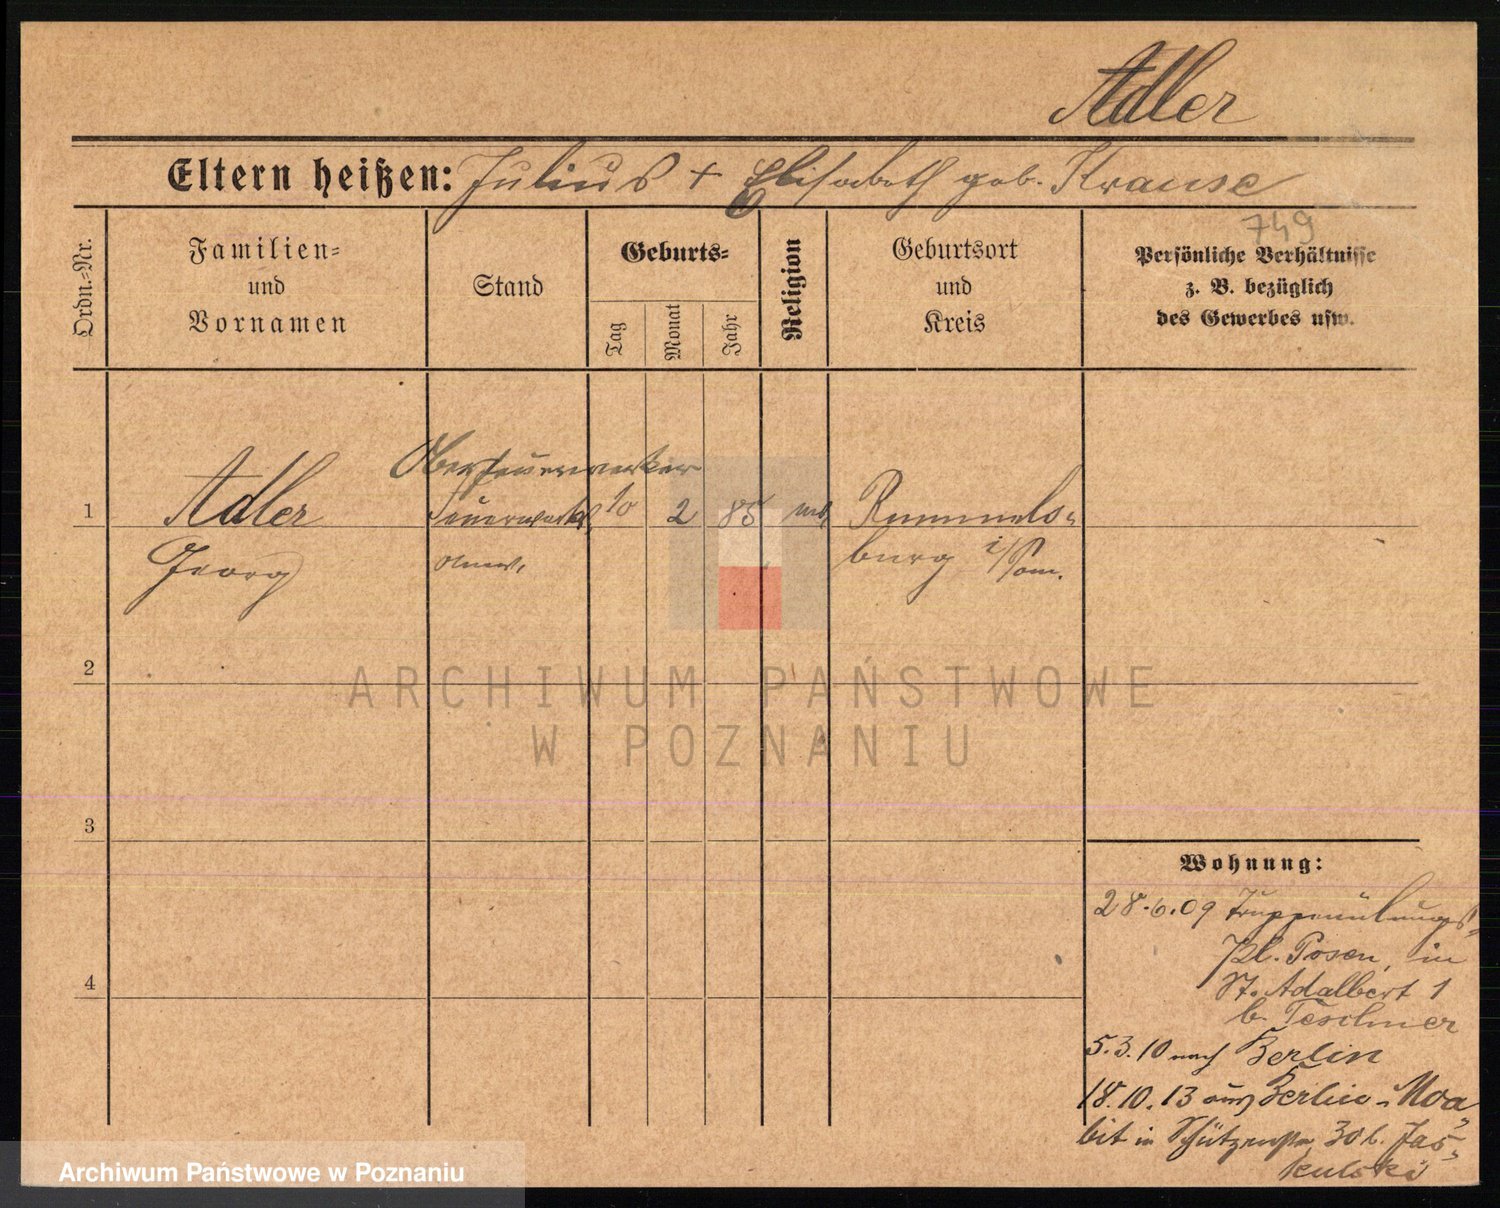 Adler
Eltern heißen: Julius + Elisabeth geb. Krause
749
Ordn.-Nr.
Familien- und Vornamen
Stand
Geburts-
Tag
Monat
Jahr
Religion
Geburtsort und Kreis
Persönliche Verhältnisse
z. B. bezüglich
des Gewerbes usw.
Oberfeuerwerker
1 Adler Feuerwerks 10 2 85 Rummels-
Georg burg i/Pom.
2
ARCHIWUM PAŃSTWOWE
W POZNANIU
3
Wohnung:
28.6.09 Truppenübungs-
Pl. Posen, in
St. Adalbert 1
b. Teschner
4
5.3.10 nach Berlin
18.10.13 aus Berlin-Moa-
bit in Schützenstr. 30 b. Jas-
kulski
Archiwum Państwowe w Poznaniu